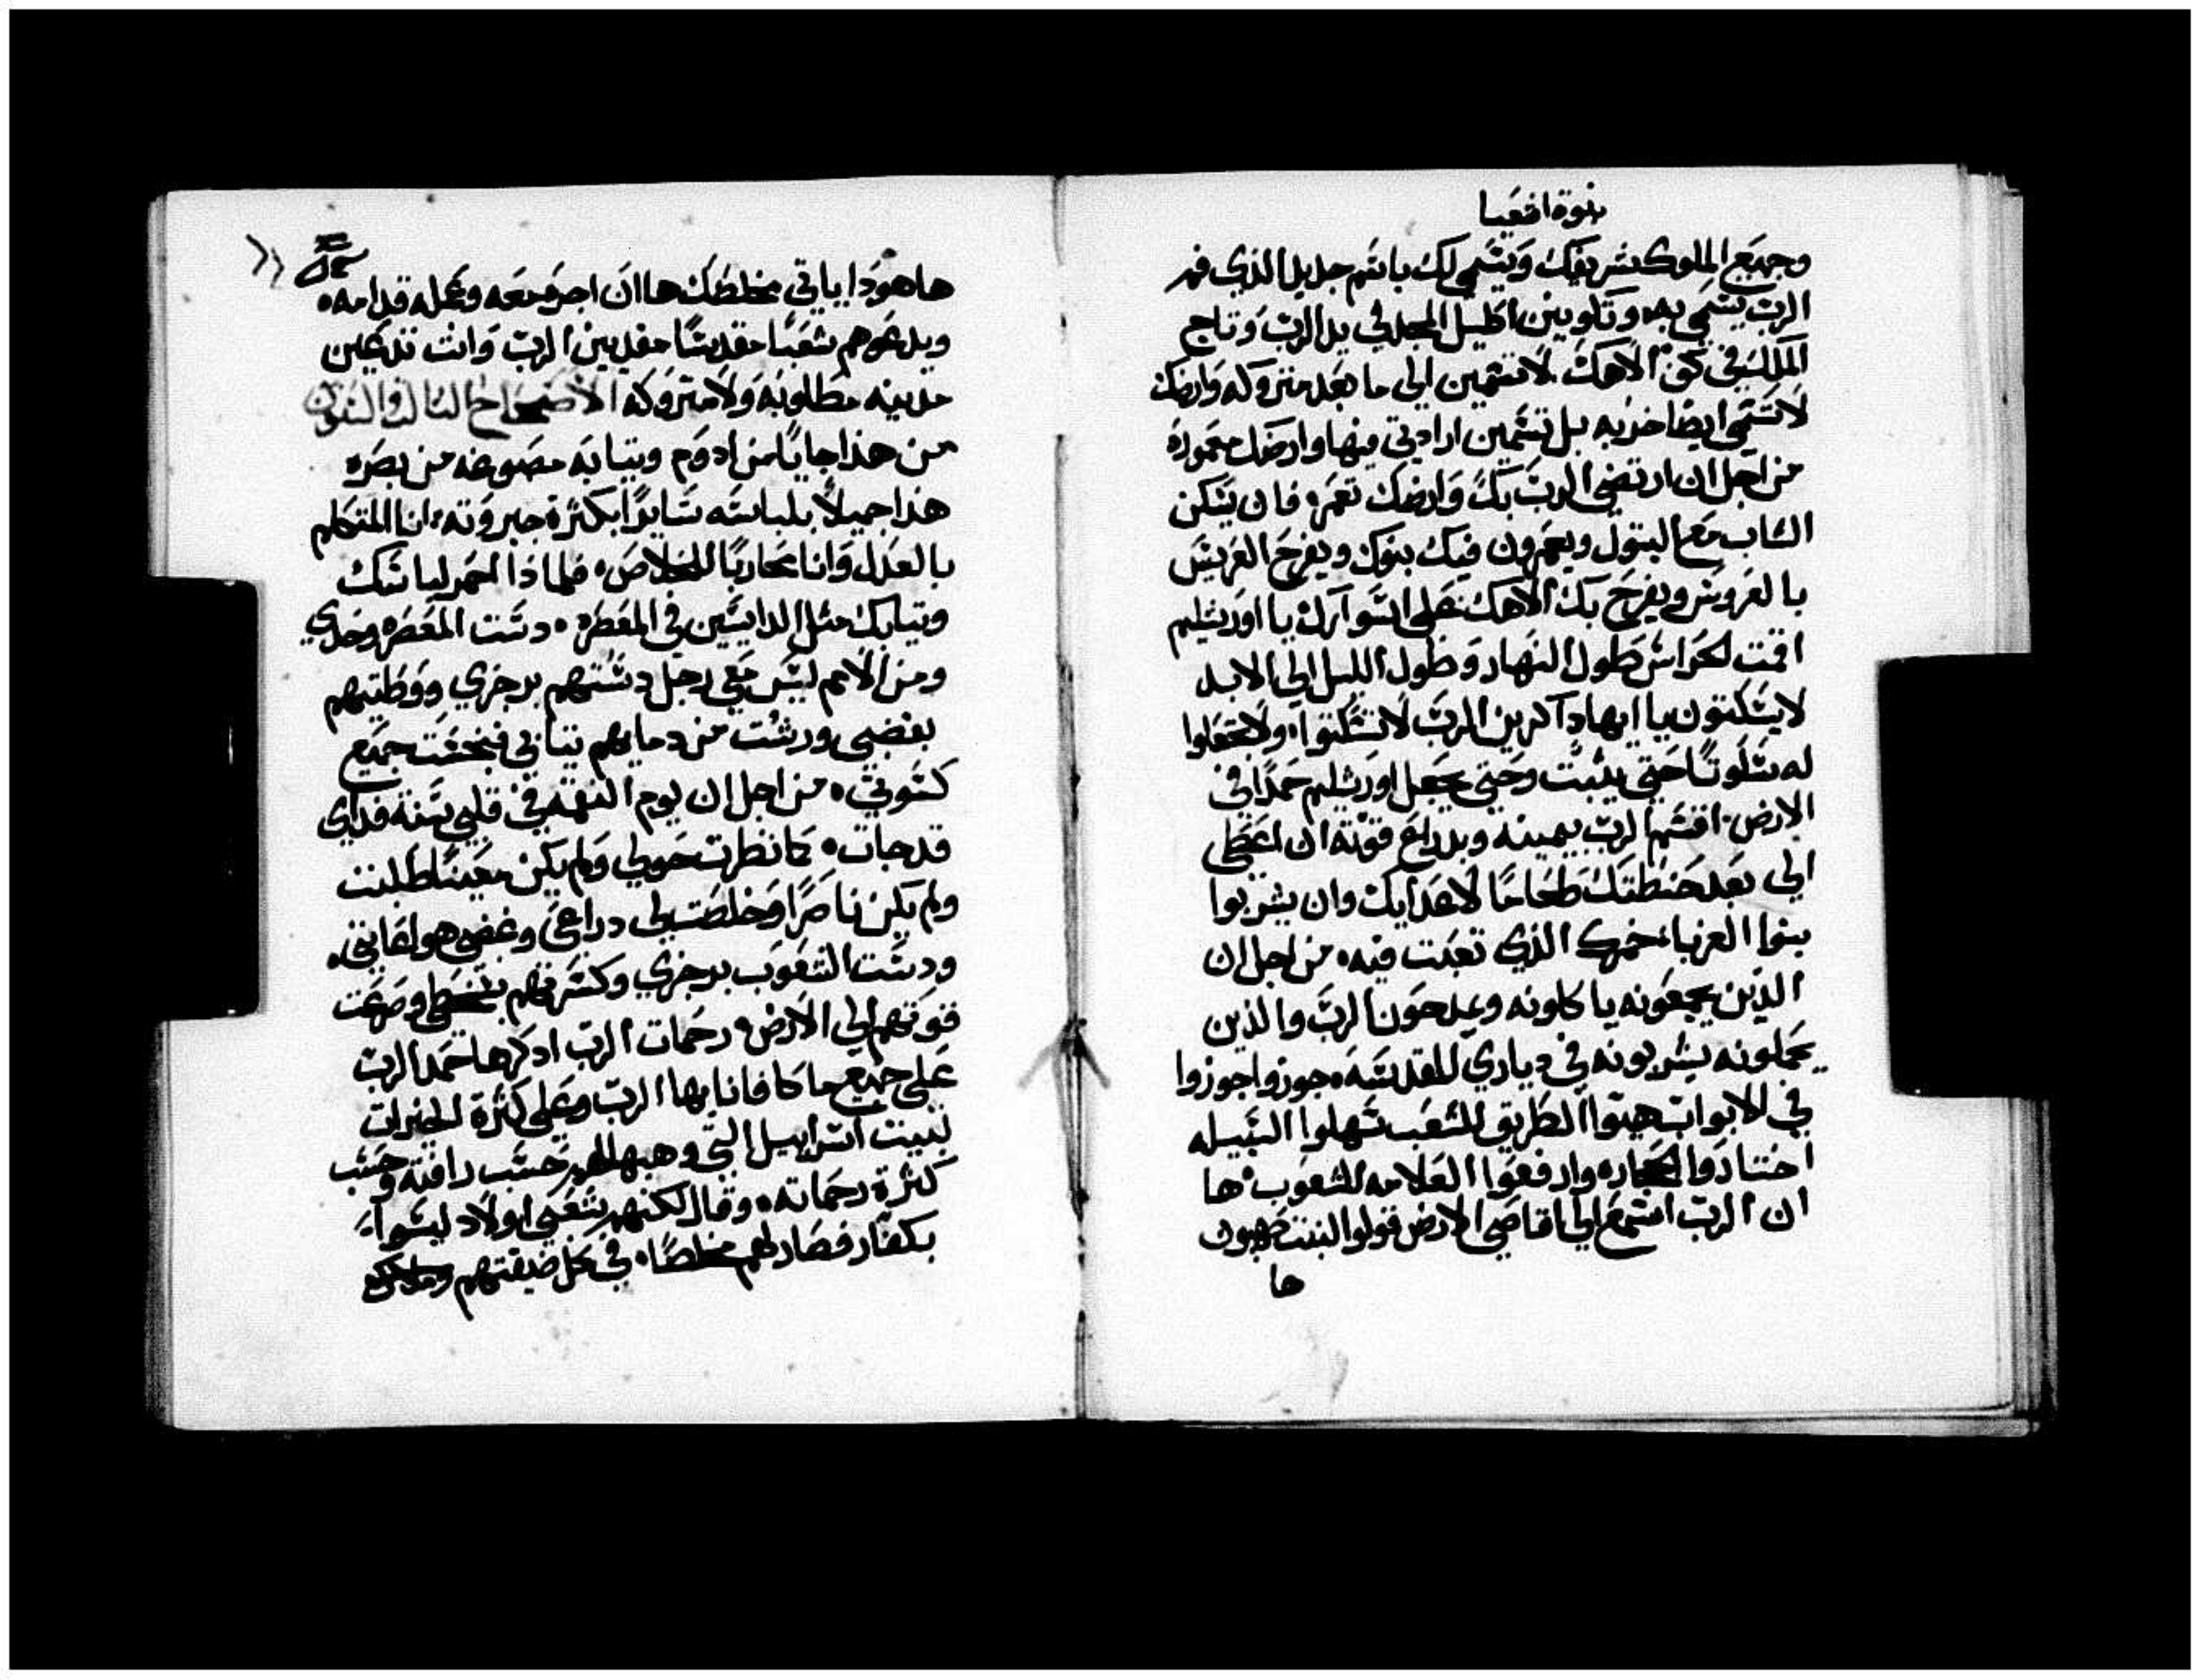 نبوة اشعيا
وجميع الملوك شريفك ويتسمي لك باسم جديد الذي فم
الرب يسمي به وتكونين اكليل المجد في يد الرب وتاج
الملك في كف الاهك لا تسمين الي ما بعد متروكه وارضك
لا تسمي ايضا خربه بل تسمين ارادتي فيها وارضك معموره
من اجل ان ارتضي الرب بك وارضك تعمر فان يسكن
الشاب مع البتول ويعمرون فيك بنوك ويفرح العريس
بالعروس ويفرح بك الاهك علي اسوارك يا اورشليم
اقمت لحراس طول النهار وطول الليل الي الابد
لا يسكتون يا ايها ذاكرين الرب لا تسكتوا ولا تجعلوا
له سكوتا حتي يثبت وحتي يجعل اورشليم حمدا في
الارض اقسم الرب بيمينه وبدراع قوته ان اعطي
الي بعد حنطتك طعاما لاعدايك وان يشربوا
بنوا الغربا خمرك الذي تعبت فيه من اجل ان
الذين يجمعونه ياكلونه ويمدحون الرب والذين
يحملونه يشربونه في دياري المقدسه جوزوا جوزوا
في الابواب هيوا الطريق للشعب سهلوا السبيله
اختاروا الحجاره وارفعوا العلامه للشعوب ها
ان الرب اسمع الي اقاصي الارض قولوا لابنت صهيون
ها
ها هوذا ياتي مخلصك ها ان اجره معه وعمله قدامه
ويدعوهم شعبا مقدسا مفديين الرب وانت تدعين
مدينه مطلوبه ولا متروكه الاصحاح الثالث والستون
من هذا جايا من ادوم وتيابه مصبوغه من بصره
هذا جميلا بلباسه سايرا بكثرة جبروته انا المتكلم
بالعدل وانا محاربا للخلاص فلماذا احمر لباسك
وتيابك مثل الدايسين في المعصره دست المعصره وحدي
ومن الامم ليس معي رجل دستهم برجزي ووطيتهم
بغضبي ورشت من دمايهم تيابي فنجست جميع
كسوتي من اجل ان يوم النقمه في قلبي سنة فداي
قد جات كانظرت حولي ولم يكن معينا طلبت
ولم يكن ناصرا وخلصت لي دراعي وغضبي هو اعانني
ودست الشعوب برجزي وكسرتهم بسخطي وضعت
قوتهم الي الارض رحمات الرب ادكرها حمد الرب
علي جميع ما كافانا بها الرب وعلي كثرة الخيرات
لبيت اسراييل التي وهبها لهم حسب رافته وحسب
كثرة رحماته وقال لكنهم شعبي اولاد ليسوا
بكفار فصار لهم مخلصا في كل ضيقتهم